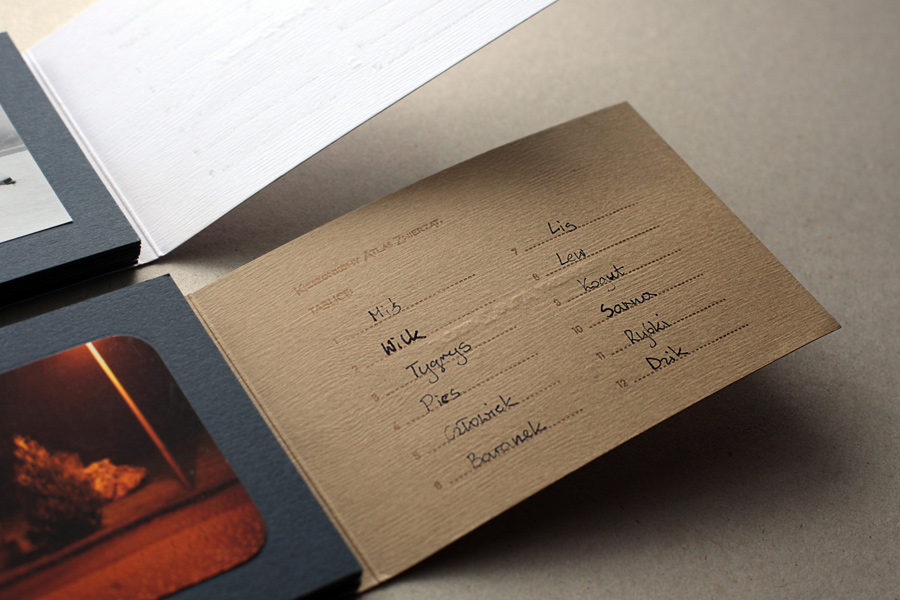 Kieszonkowy Atlas Zwierząt
TABLICE
1. Miś
2. Wilk
3. Tygrys
4. Pies
5. Człowiek
6. Baranek
7. Lis
8. Lew
9. Kogut
10. Sarna
11. Rybki
12. Dzik